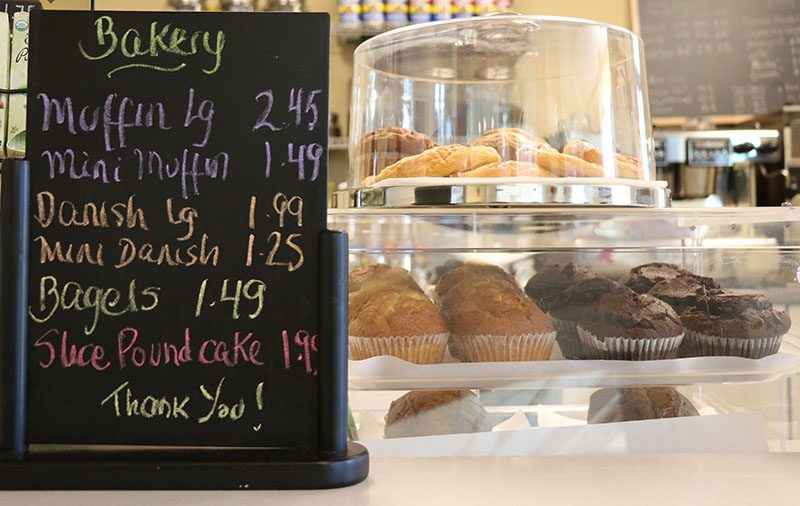 Bakery
Muffin Lg 2.45
Mini Muffin 1.49
Danish Lg 1.99
Mini Danish 1.25
Bagels 1.49
Slice Pound cake 1.99
Thank You!